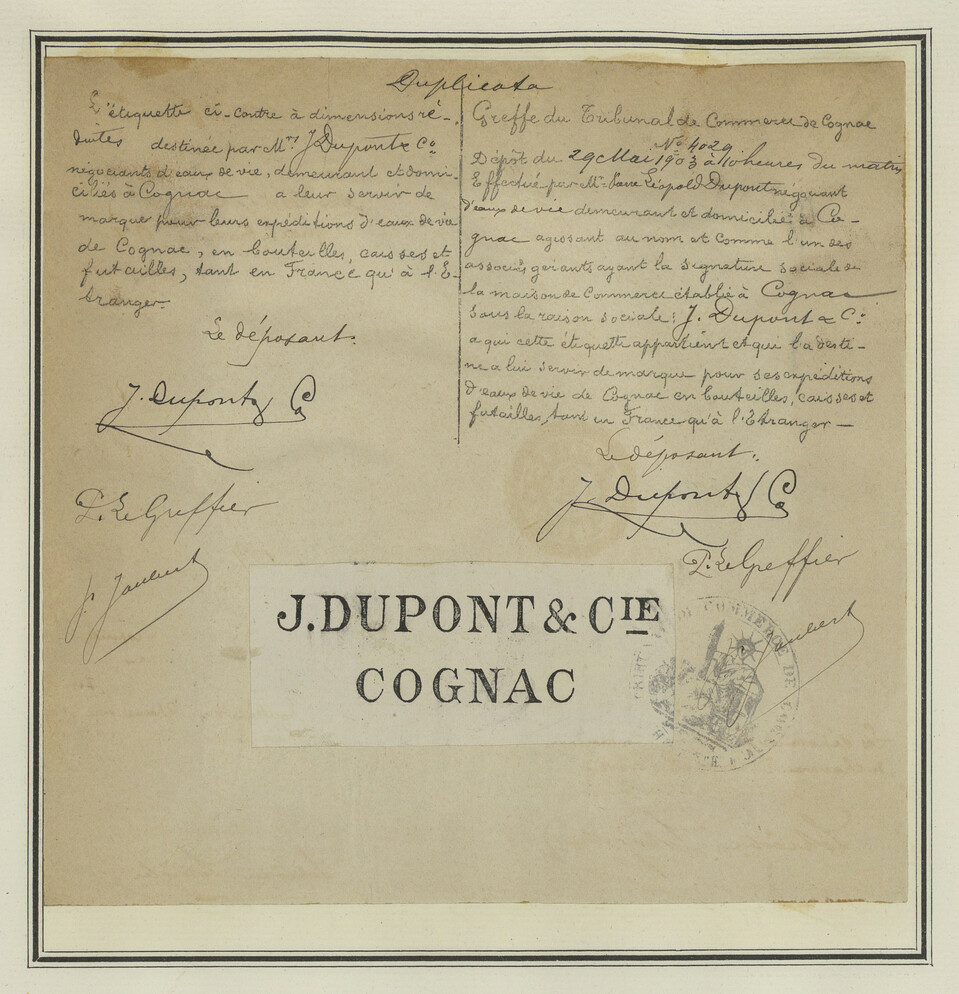 Duplicata
L'étiquette ci-contre à dimensions ré-
duites destinée par Mrs J. Dupont & Co
négociants d'eaux de vie, demeurant et domi-
ciliés à Cognac a leur servir de
marque pour leurs expéditions d'eaux de vie
de Cognac, en bouteilles, caisses et
futailles, tant en France qu'à l'E-
tranger.
Le déposant.
J. Dupont & Co
P. Le Greffier
J. Joubert
Greffe du Tribunal de Commerce de Cognac
No 4029
Dépôt du 29 Mai 1903 à 10 heures du matin
Effectué par Mr Pierre Léopold Dupont négociant
d'eaux de vie demeurant et domicilié à Co-
gnac agissant au nom et comme l'un des
associés gérants ayant la signature sociale de
la maison de Commerce établie à Cognac
sous la raison sociale: J. Dupont & Cie
a qui cette etiquette appartient et qui l'a desti-
née a lui servir de marque pour ses expéditions
d'eaux de vie de Cognac en bouteilles, caisses et
futailles, tant en France qu'à l'Etranger —
Le déposant.
J. Dupont & Co
P. Le Greffier
Joubert
J. DUPONT & CIE
COGNAC
DE COMMERCE DE COGNAC